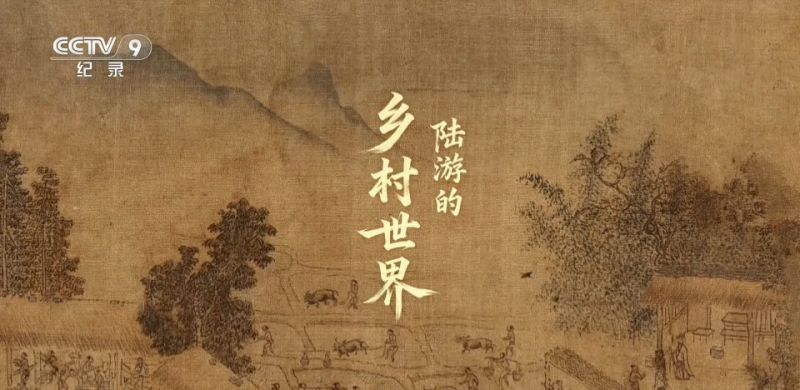 CCTV 9
纪录
陆游的
乡村世界